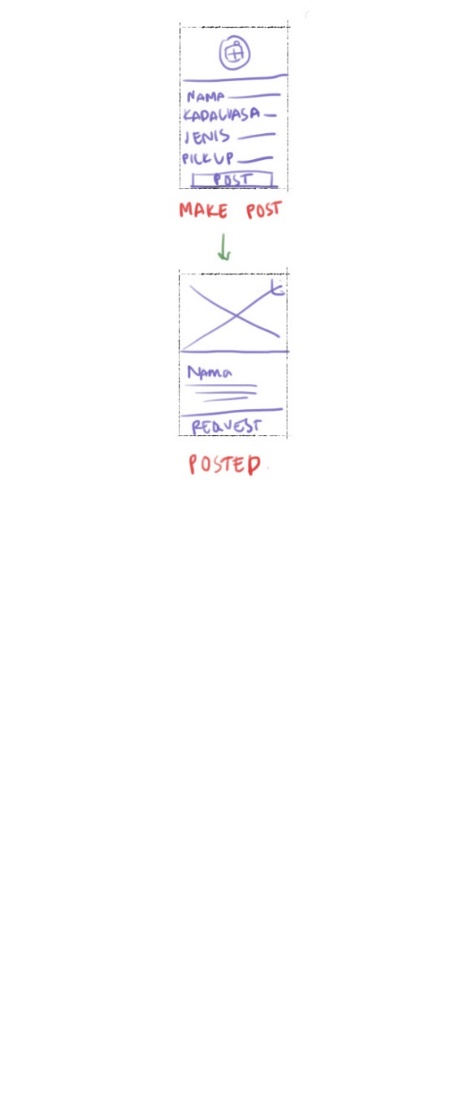 NAMA
KADALUASA
JENIS
PICKUP
POST
MAKE POST
Nama
REQUEST
POSTED